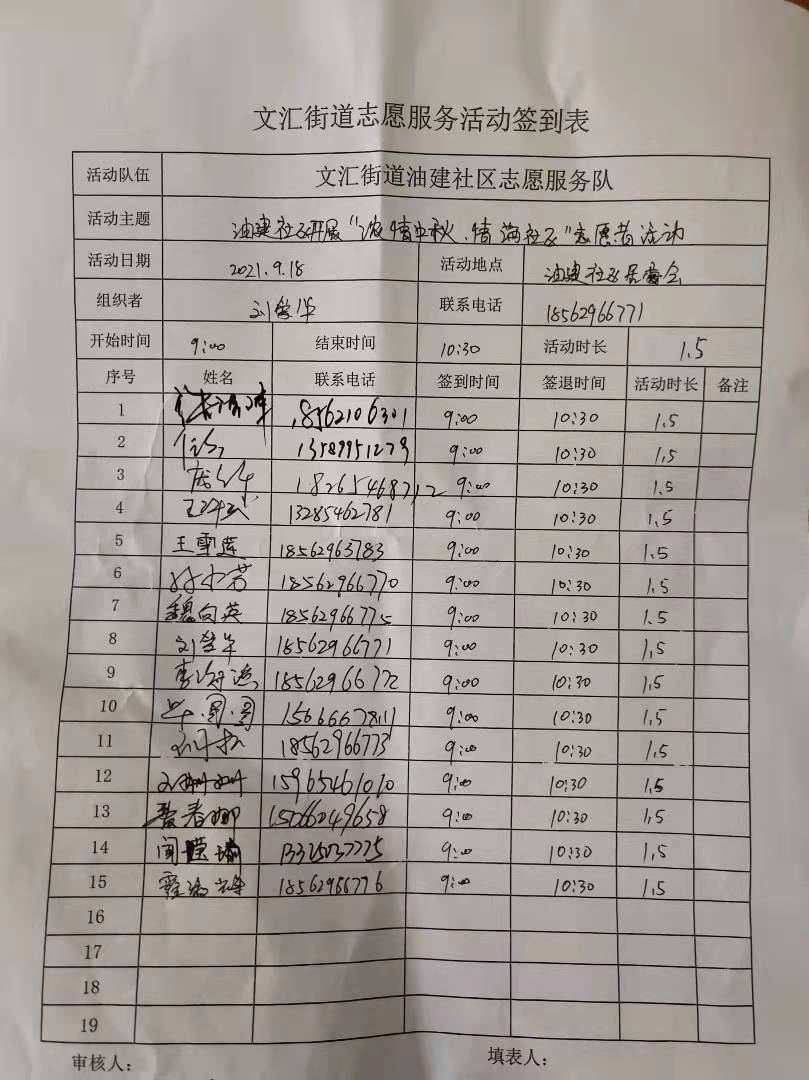 文汇街道志愿服务活动签到表
活动队伍 文汇街道油建社区志愿服务队
活动主题 油建社区开展"浓情中秋、情满社区"志愿者活动
活动日期 2021.9.18 活动地点 油建社区居委会
组织者 刘学华 联系电话 18562966771
开始时间 9:00 结束时间 10:30 活动时长 1.5
序号 姓名 联系电话 签到时间 签退时间 活动时长 备注
1 18562106301 9:00 10:30 1.5
2 13589951273 9:00 10:30 1.5
3 9:00 10:30 1.5
4 13285462781 9:00 10:30 1.5
5 王雪莲 18562963783 9:00 10:30 1.5
6 18562966770 9:00 10:30 1.5
7 魏向英 18562966775 9:00 10:30 1.5
8 刘学华 18562966771 9:00 10:30 1.5
9 18562966772 9:00 10:30 1.5
10 15666678111 9:00 10:30 1.5
11 18562966773 9:00 10:30 1.5
12 15965461010 9:00 10:30 1.5
13 春娜 15066049658 9:00 10:30 1.5
14 9:00 10:30 1.5
15 18562966776 9:00 10:30 1.5
16
17
18
19
审核人： 填表人：